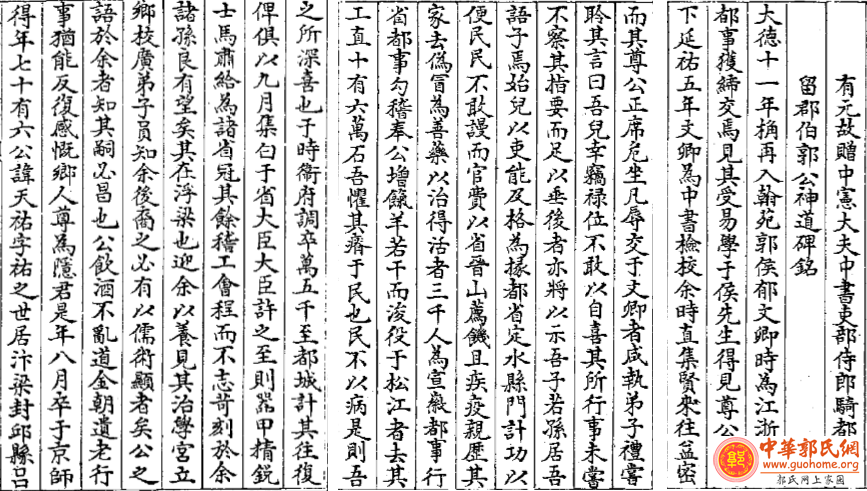 有元故贈中憲大夫中書吏部侍郎騎都
留郡伯郭公神道碑銘
大德十一年桷再入翰苑郭侯郁文卿時為江浙
都事獲締交焉見其受易學于侯先生得見尊公
下延祐五年文卿為中書檢校余時直集賢來往益密
而其尊公正席危坐凡辱交于文卿者咸執弟子禮嘗
聆其言曰吾兒幸竊祿位不敢以自喜其所行事未嘗
不察其指要而足以垂後者亦將以示吾子若孫居吾
語子焉始兒以吏能及格為掾都省定水縣門計功以
便民民不敢謾而官費以省晉山薦饑且疾疫親歷其
家去偽冒為善藥以治得活者三千人為宣徽都事行
省都事勾稽奉公增餼羊若干而浚役于松江者去其
工直十有六萬石吾懼其瘠于民也民不以病是則吾
之所深喜也于時衛府調卒萬五千至都城計其往復
俾俱以九月集白于省大臣大臣許之至則器甲精銳
士馬肅給為諸省冠其餘稽工會程而不志苛刻於余
諸孫良有望矣其在浮梁也迎余以養見其治學宮立
鄉校廣弟子員知余後裔之必有以儒術顯者矣公之
語於余者知其嗣必昌也公飲酒不亂道金朝遺老行
事猶能反復感慨鄉人尊為隱君是年八月卒于京師
得年七十有六公諱天祐字祐之世居汴梁封邱縣呂
郭
中華郭氏網
www.guohome.org
郭氏網上家園